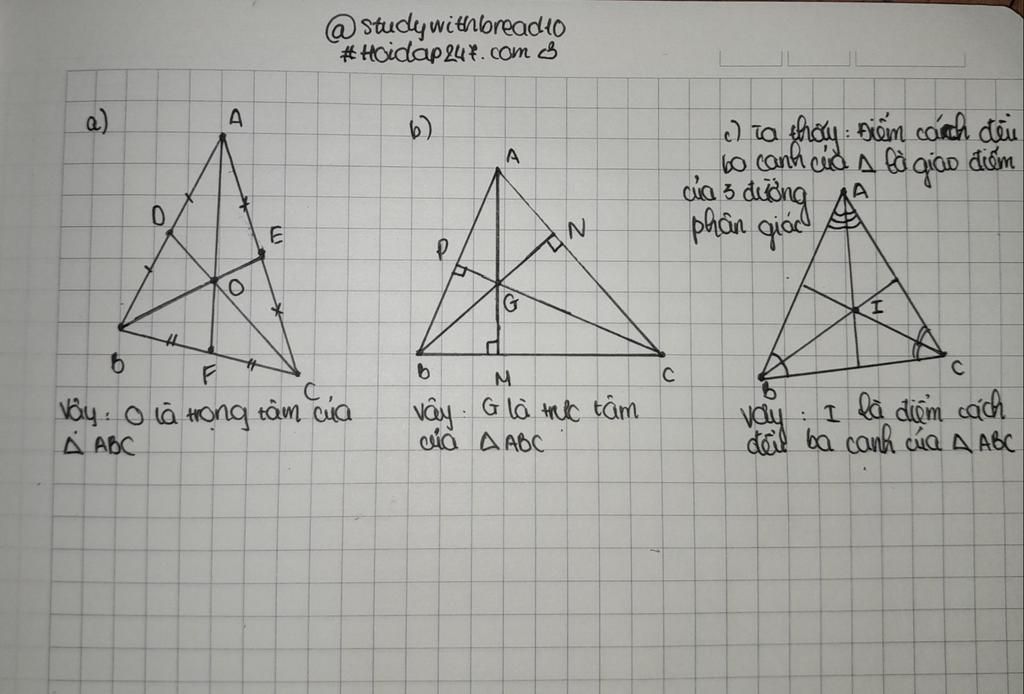 @studywithbread10
#Hoidap247.com <3
a)
A
D
E
O
B
F
C
Vậy: O là trọng tâm của
Δ ABC
b)
A
N
P
G
B
M
C
Vậy: G là trực tâm
của Δ ABC
c) Ta thấy: Điểm cách đều
ba cạnh của Δ là giao điểm
của 3 đường
phân giác
A
I
B
C
Vậy: I là điểm cách
đều ba cạnh của Δ ABC